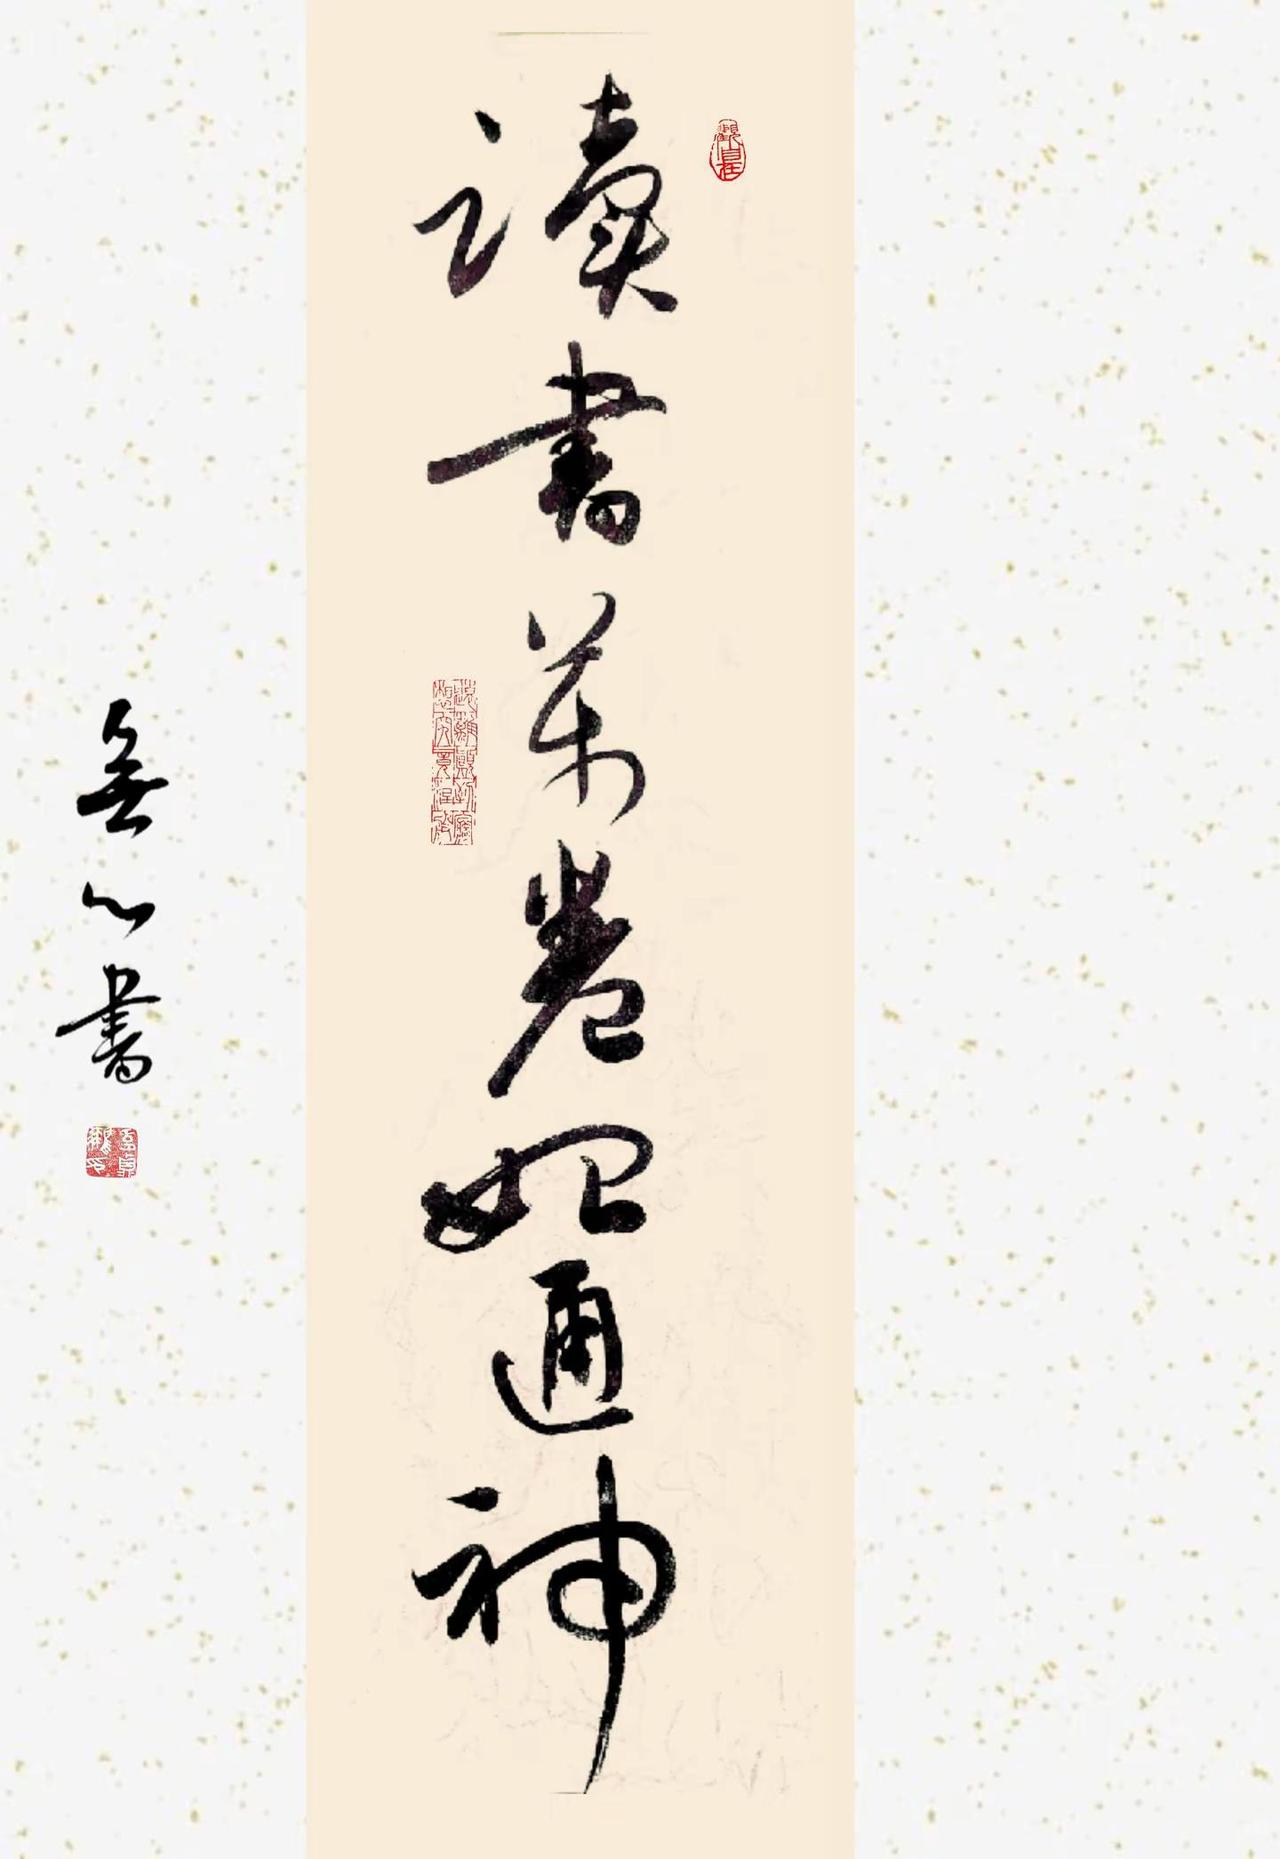 讀書萬卷始通神
無心書